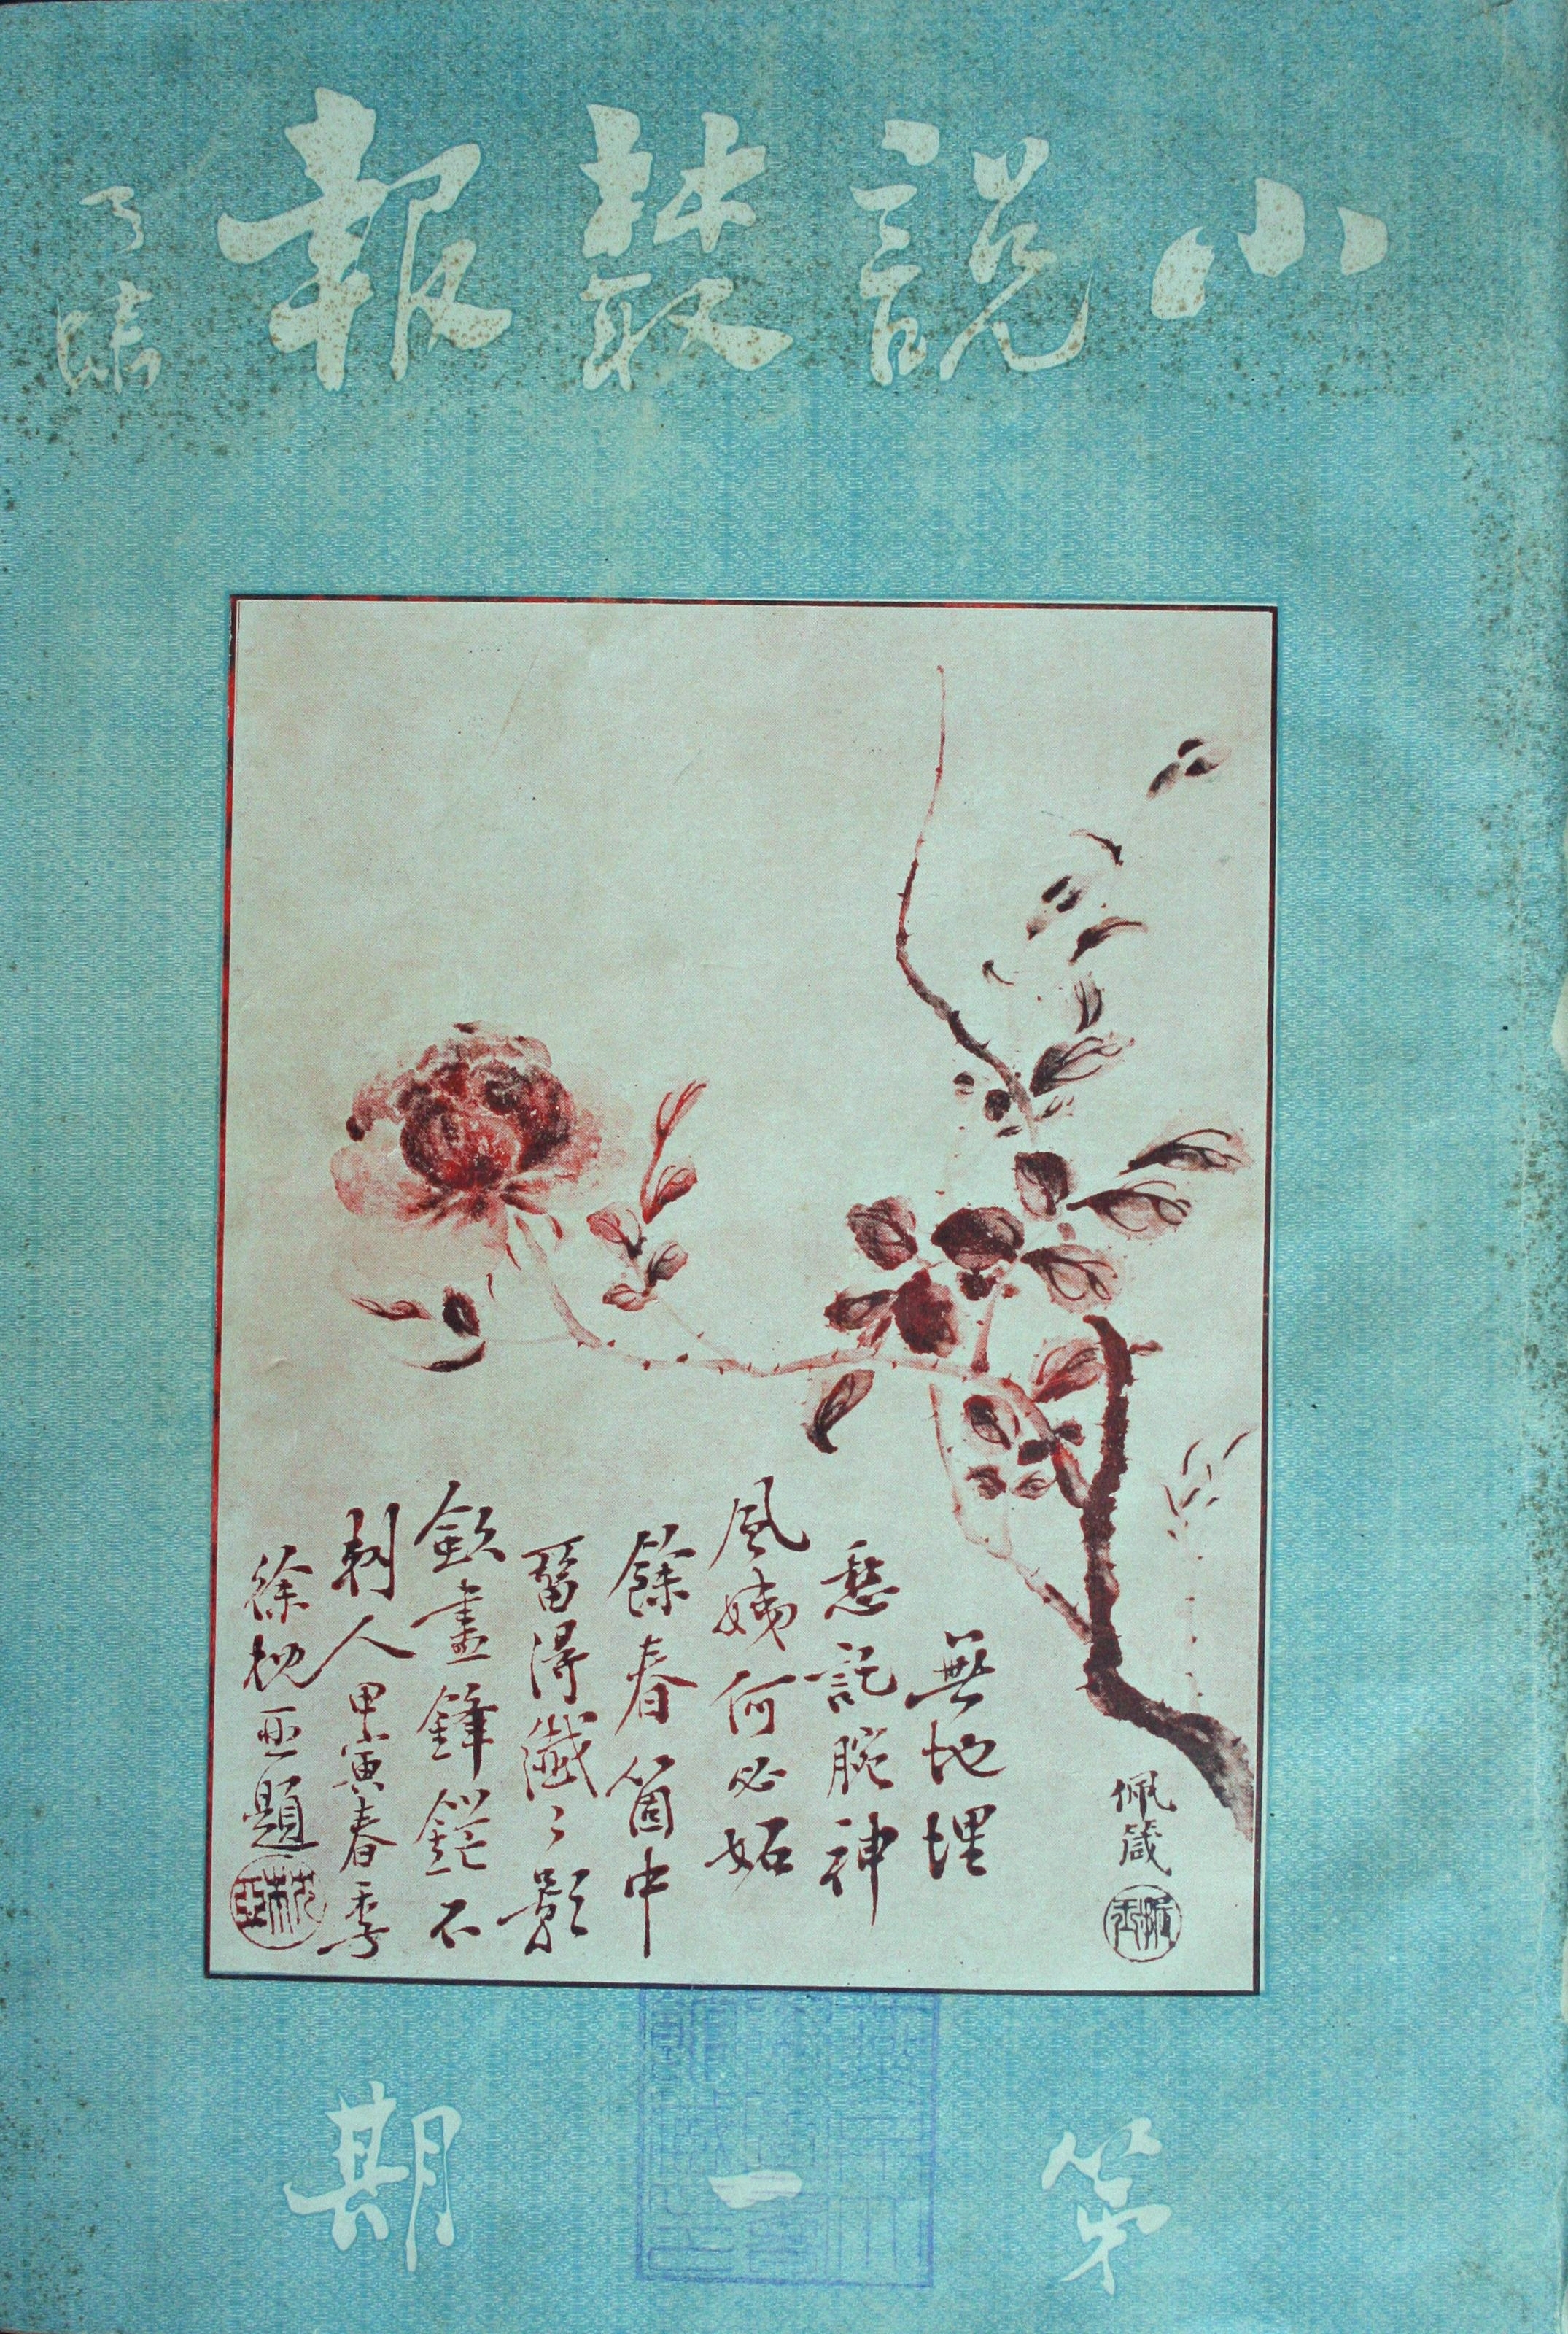 小說叢報
佩箴
無地埋
愁託腕神
風姨何必妬
餘春箇中
留得纖々影
歛盡鋒鋩不
刺人 甲寅春季
徐枕亞題
枕亞
第一期